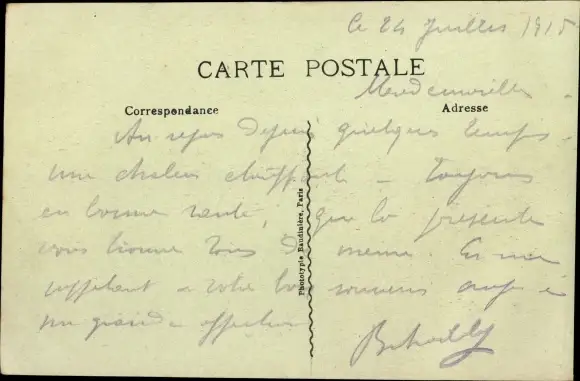 le 24 Juillet 1915
CARTE POSTALE
Correspondance
Adresse
Au repos depuis quelques temps.
une chaleur étouffante - Toujours
en bonne santé, que la présente
vous trouve tous de meme. En me
rappelant a votre bon souvenir ainsi
grande affection
Phototypie Baudinière, Paris